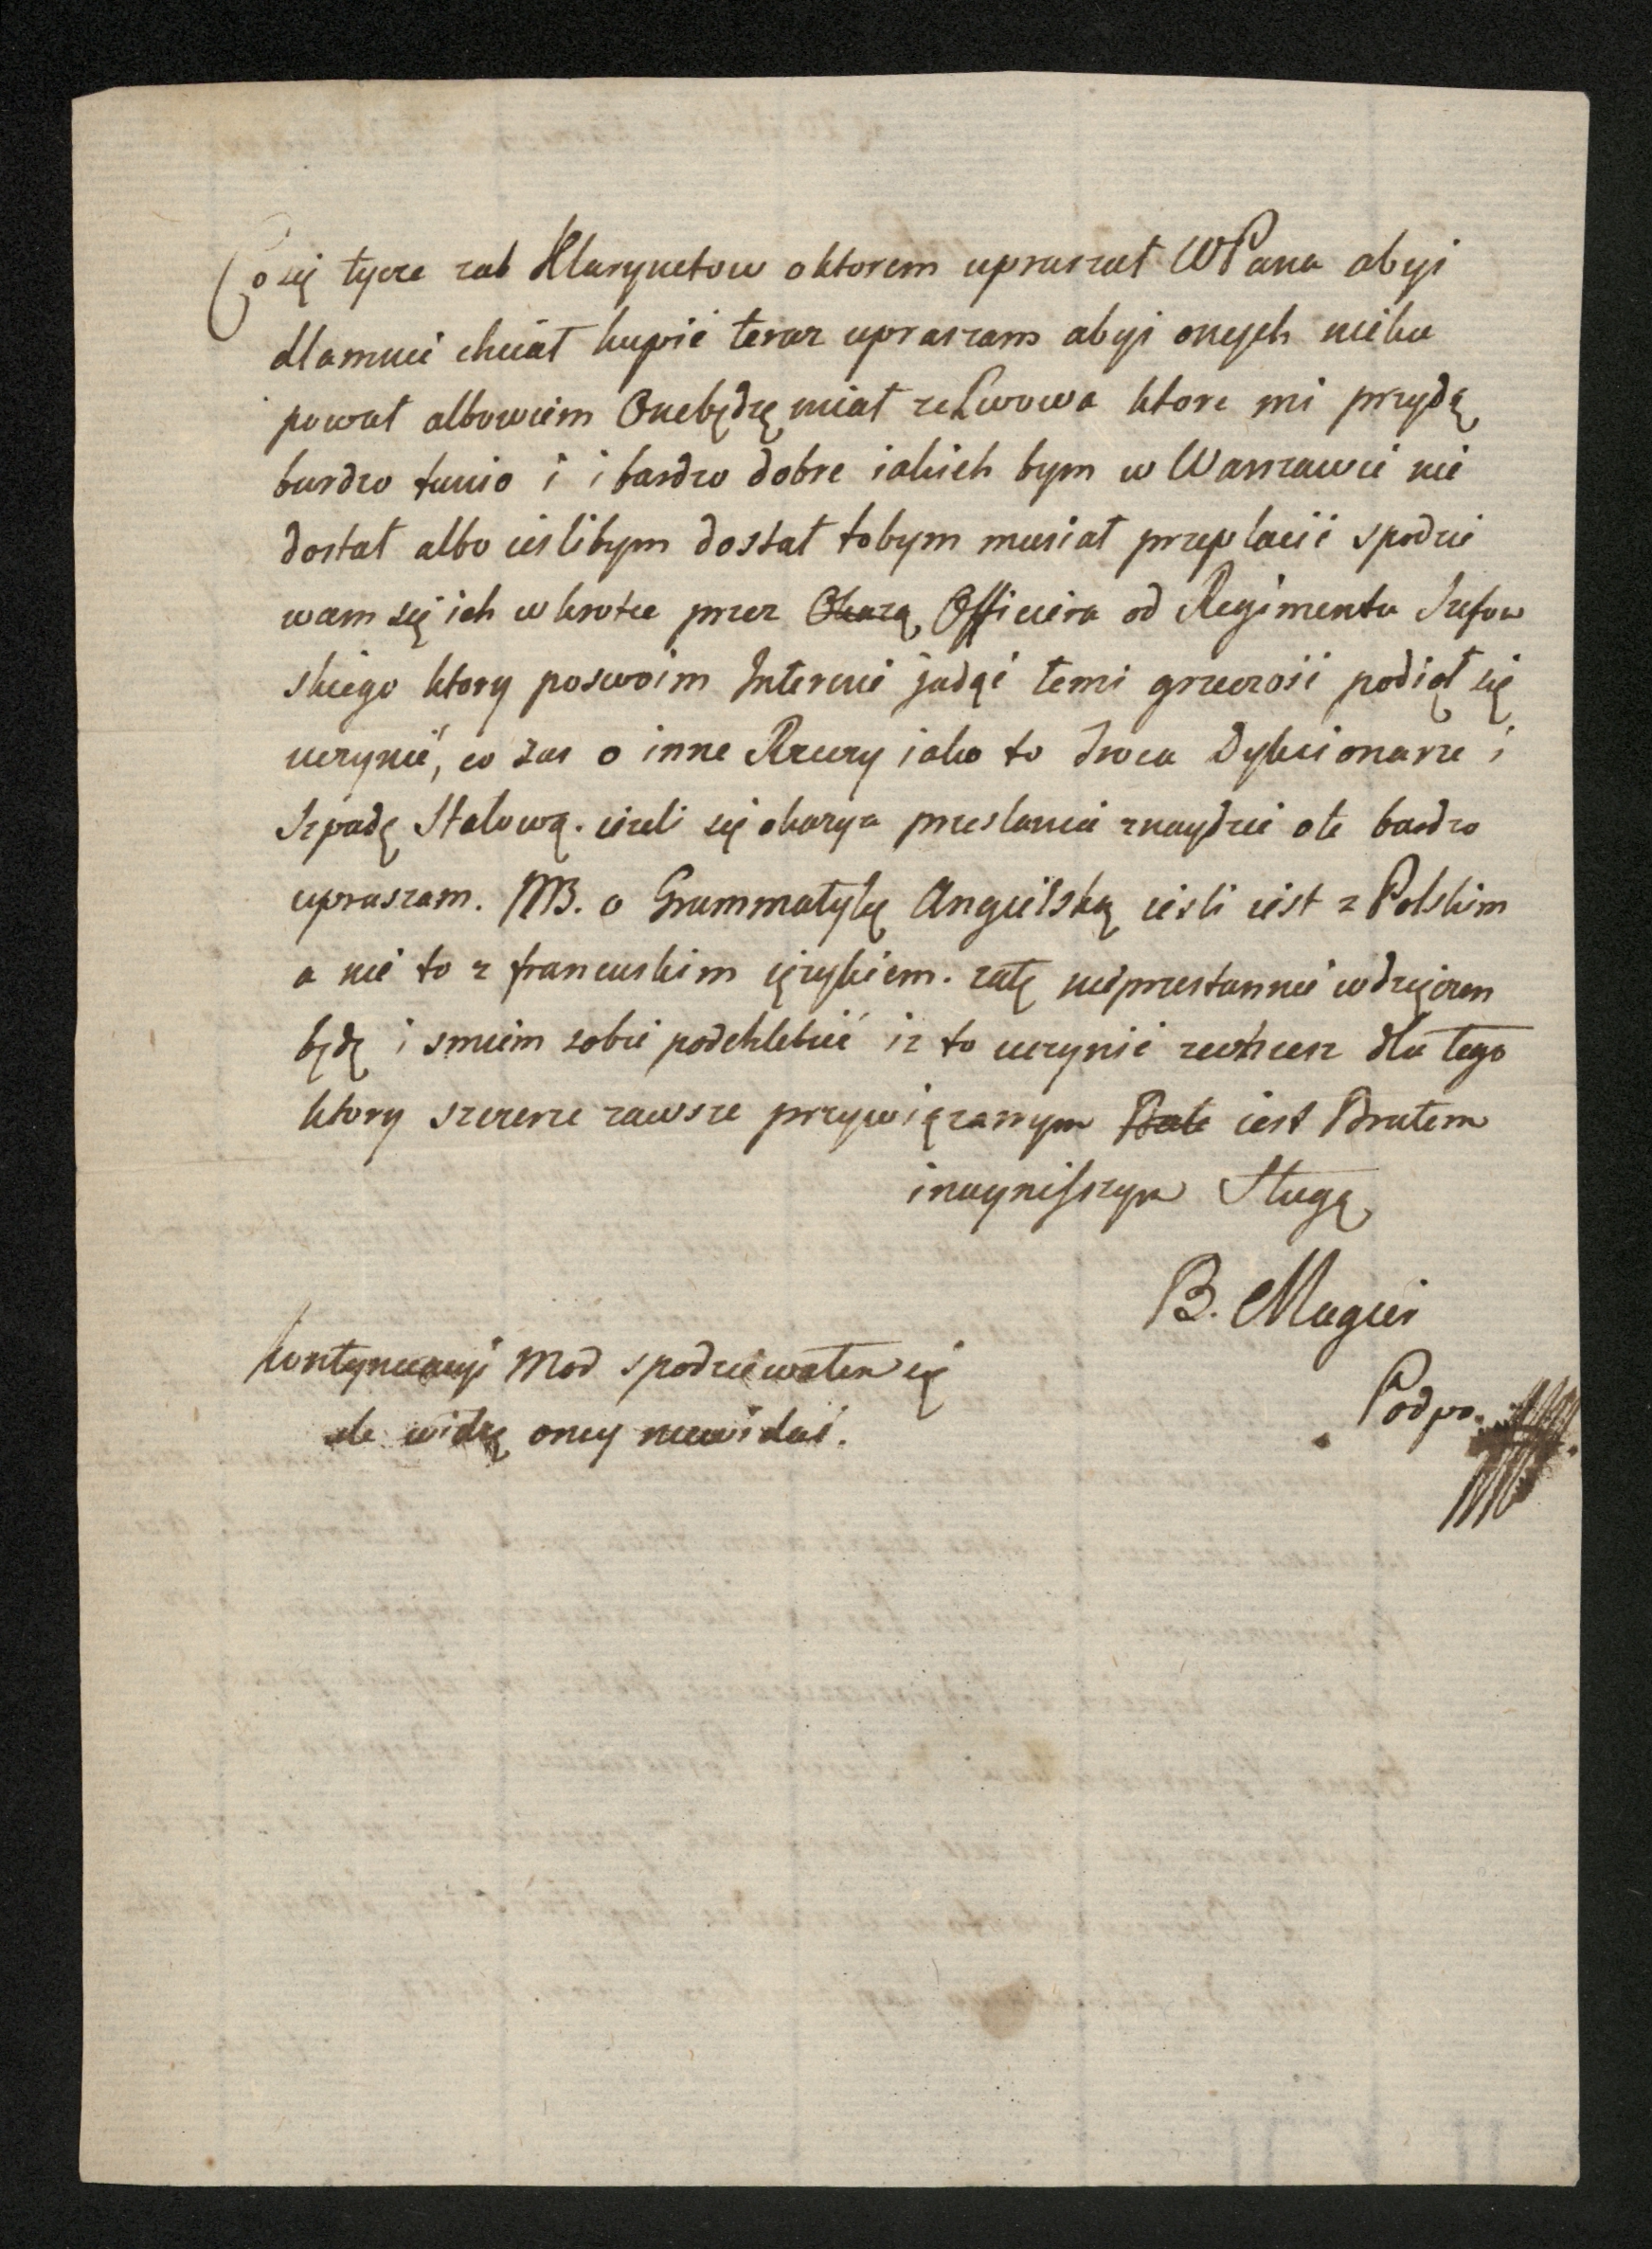 Co się tycze zaś Klarynetow oktorem upraszał WPana abyś
dlamnie chciał kupić teraz upraszam abyś onych nieku
pował albowiem Onebędę miał zeLwowa ktore mi przydą
bardzo tanio i i bardzo dobre iakich bym w Warszawie nie
dostał albo ieslibym dostał tobym musiał przepłacić spodzie
wam się ich wkrotce przez Okazą Officiera od Regimentu Szefow
skiego ktory poswoim Interesie jadąć temi grzeczosci podiął się
uczynić, co zas o inne Rzeczy iako to Dykcionarze i
Szpadę Stalową. iezeli się okazya przesłania znaydzie ote bardzo
upraszam. NB. o Grammatykę Angielską iesli iest z Polskim
a nie to z francuskim ięzykiem. zatę nieprzestannie wdzięczen
będę i smiem sobie podchlebić iz to uczynić zechcesz dla tego
ktory szczerze zawsze przywiązanym Bratem iest Bratem
inayniższym Sługą
B. Magier
Podpo.
kontynuacyi Mod spodziewałem się
ale widzę oney niewidać.